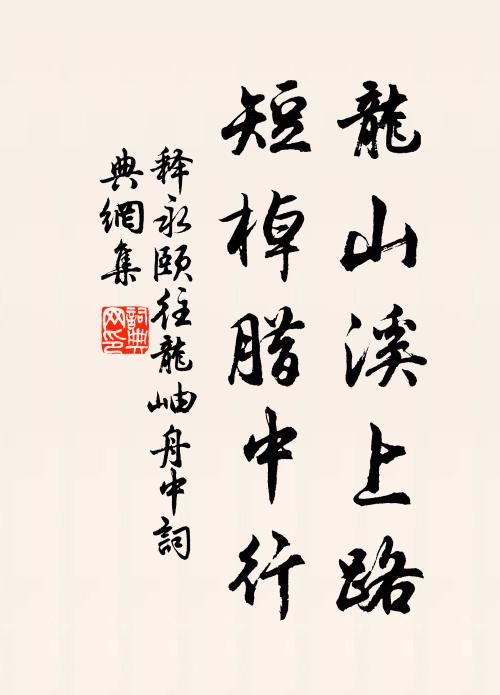 龍山溪上路
短棹腊中行
释永頤往龍岫舟中詞
典網集
詞典
网印